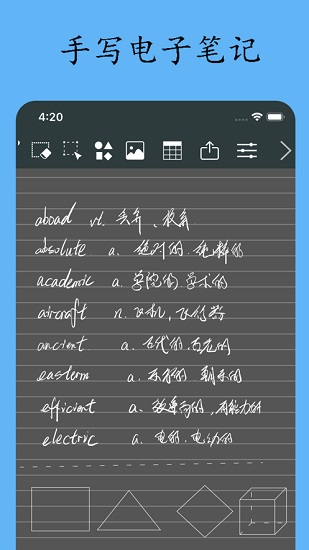 手写电子笔记
4:20
aboad vt. 丢弃、放弃
absolute a. 绝对的、纯粹的
academic a. 学院的、学术的
aircraft n. 飞机、飞行器
ancient a. 古代的、古老的
eastern a. 东方的、朝东的
efficient a. 效率高的、有能力的
electric a. 电的、电动的